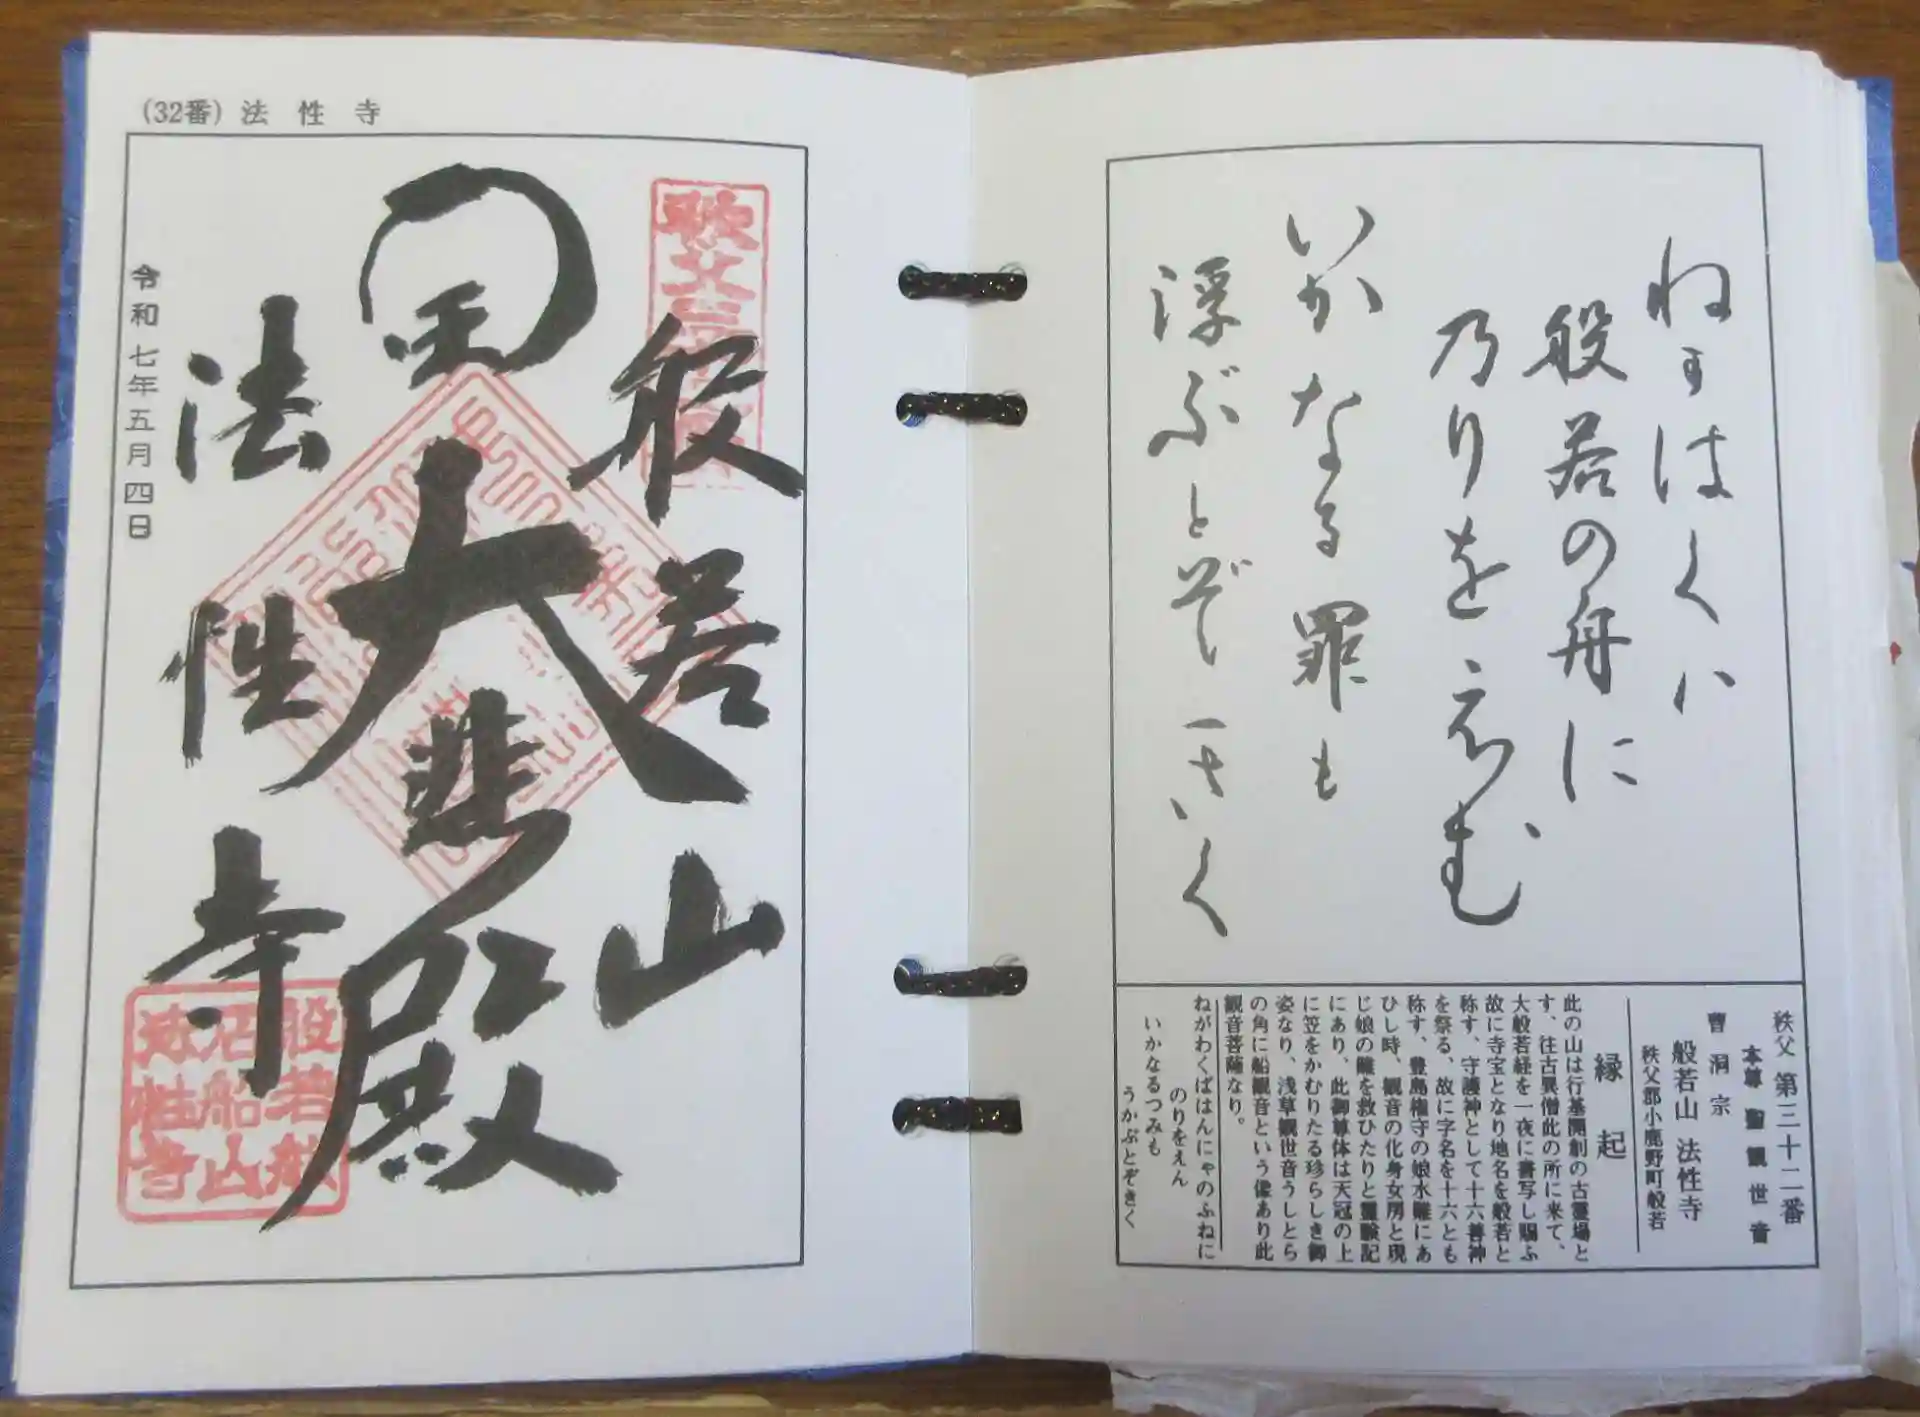 秩父 第三十二番
本尊 聖観世音
曹洞宗
般若山 法性寺
秩父郡小鹿野町般若
縁起
此の山は行基開創の古霊場と
す、往古異僧此の所に来て、
大般若経を一夜に書写し賜ふ
故に寺宝となり地名を般若と
称す、守護神として十六善神
を祭る、故に字名を十六とも
称す、豊島権守の娘水難にあ
ひし時、観音の化身女房と現
じ娘の難を救ひたりと霊験記
にあり、此御尊体は天冠の上
に笠をかむりたる珍らしき御
姿なり、浅草観世音うしとら
の角に船観音という像あり此
観音菩薩なり。
ねがわくばはんにゃのふねに
のりをえん
いかなるつみも
うかぶとぞきく
般若の舟に
乃りを
いかなる罪も
浮ぶとぞ
(32番) 法性寺
般若山
大悲殿
法性寺
令和七年五月四日
般若
石船山
法性寺